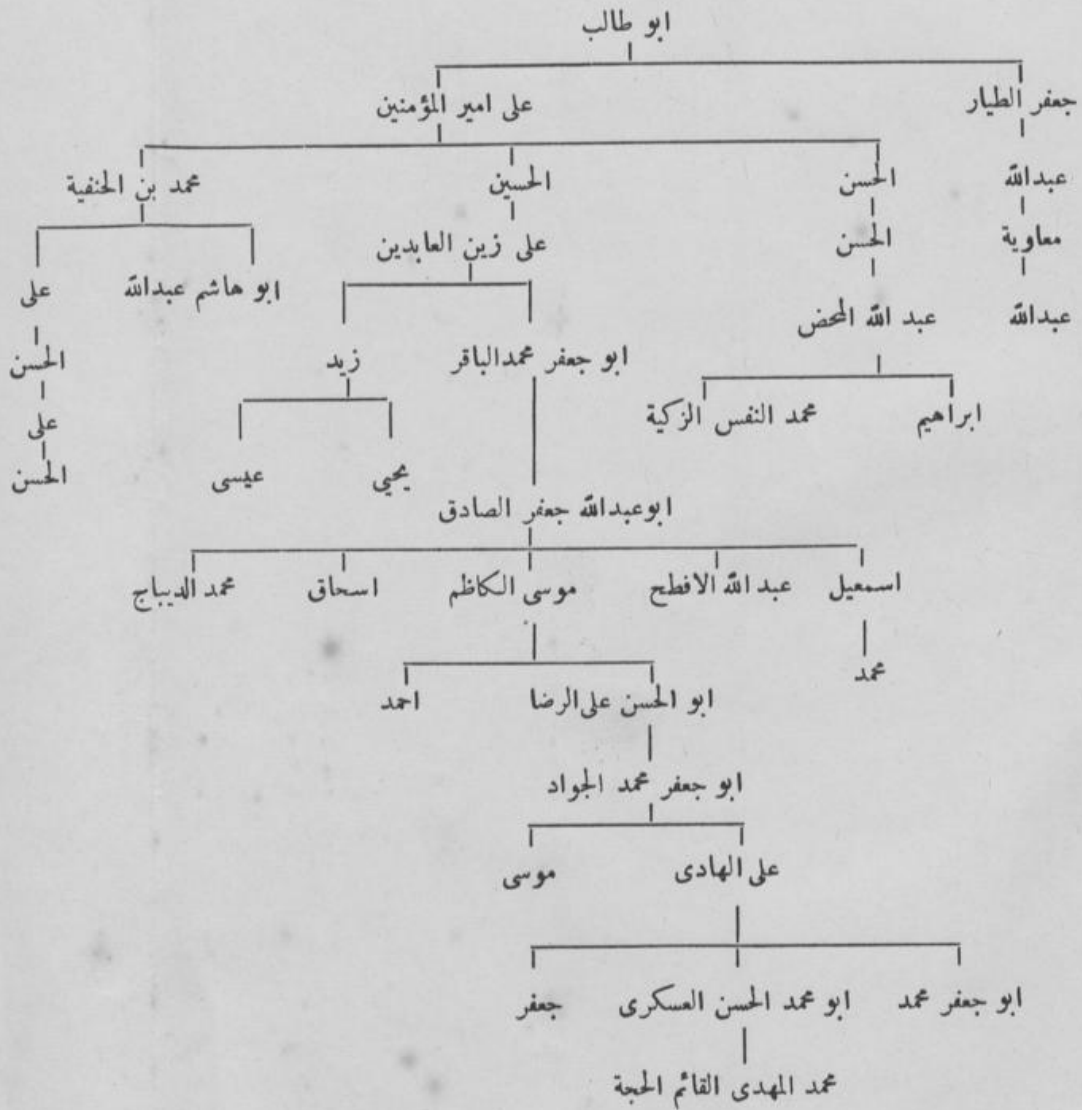 ابو طالب
جعفر الطيار على امير المؤمنين
عبدالله الحسن الحسين محمد بن الحنفية
معاوية الحسن على زين العابدين
ابو هاشم عبدالله على
عبدالله عبد الله المحض
ابو جعفر محمدالباقر زيد الحسن
ابراهيم محمد النفس الزكية على
يحيي عيسى الحسن
ابوعبدالله جعفر الصادق
اسمعيل عبد الله الافطح موسى الكاظم اسحاق محمد الديباج
محمد
ابو الحسن على الرضا احمد
ابو جعفر محمد الجواد
على الهادى موسى
ابو جعفر محمد ابو محمد الحسن العسكرى جعفر
محمد المهدى القائم الحجة